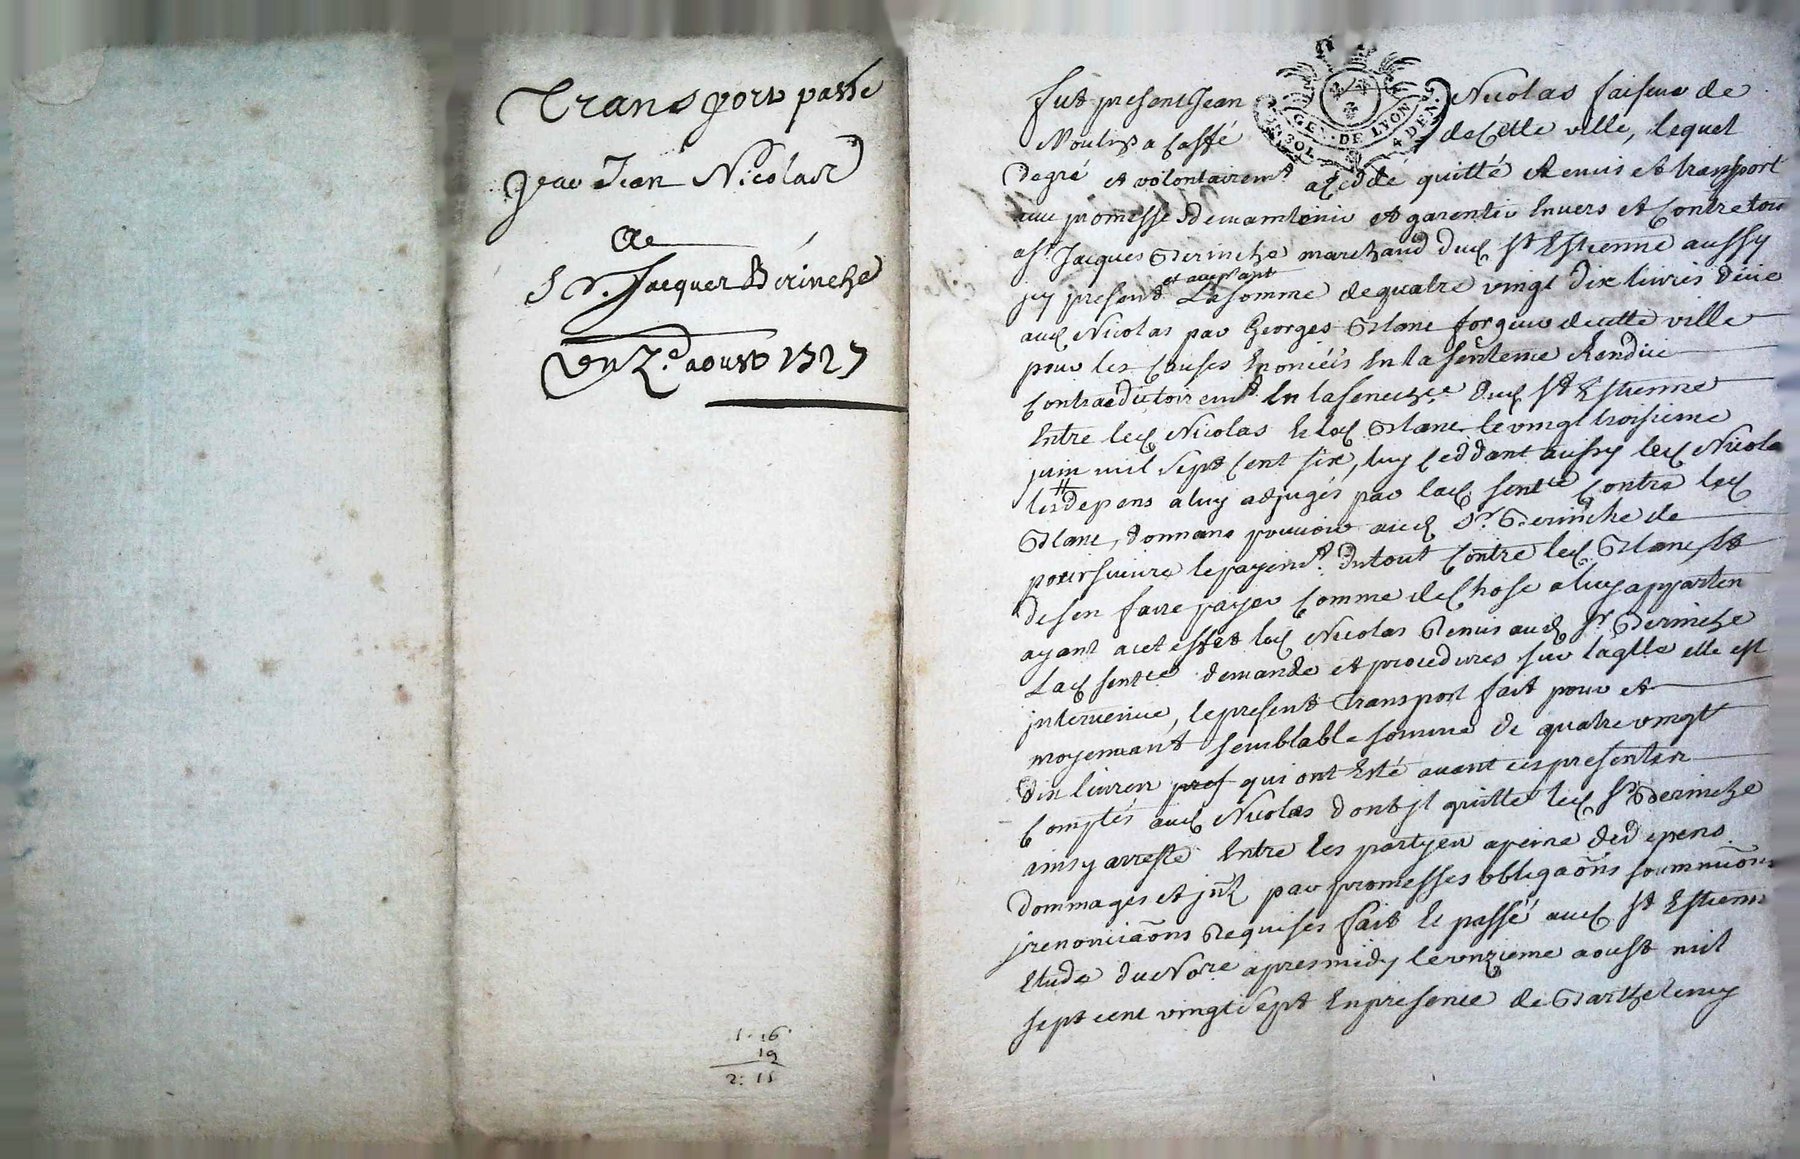 Transport passé
par Jean Nicolas
A
Sr. Jacques Berinche
Du 2e aoust 1727
1. 16
19
2: 15
GEN. DE LYON
IN SOL 4 DEN.
fut present Jean Nicolas faiseur de
Moulins a Caffé de Cette ville, lequel
de gré et volontairemt a Ceddé quitté Remis et transport
avec promesse de maintenir et garentir Envers et Contre tous
a Sr Jacques Berinche marchand dud St Estienne aussy
jcy present et acceptant La somme de quatre vingt dix livres deüe
aud Nicolas par Georges Blanc forgeur de cette ville
pour les Causes Enoncéés En la sentence Rendüe
Contradictoiremt. En la senechée dud St Estienne
Entre led Nicolas Et led Blanc le vingt troisieme
juin mil sept Cent six, luy Ceddant aussy led Nicolas
les depens a luy adjugés par lad sentce Contre led
Blanc, donnant pouvoir aud Sr Berinche de
poursuivre le payemt. du tout Contre led Blanc, Et
de sen faire payer Comme de Chose a luy apparten
ayant a cet effet led Nicolas Remis aud Sr Berinche
Lad sentce demande et procedures sur laqlle elle est
jntervenüe, le present transport fait pour et
moyennant semblable somme de quatre vingt
dix livres que ont Esté avant ces presentes
Comptés aud Nicolas dont jl quitte led Sr Berinche
ainsy arresté Entre les partyes a peine de depens
dommages et jnt par promesses obligaons soummissions
renonciaons Requises fait Et passé aud St Estienne
Etude du Nore apres midy le onzieme aoust mil
sept cent vingt sept En presence de Barthelemy